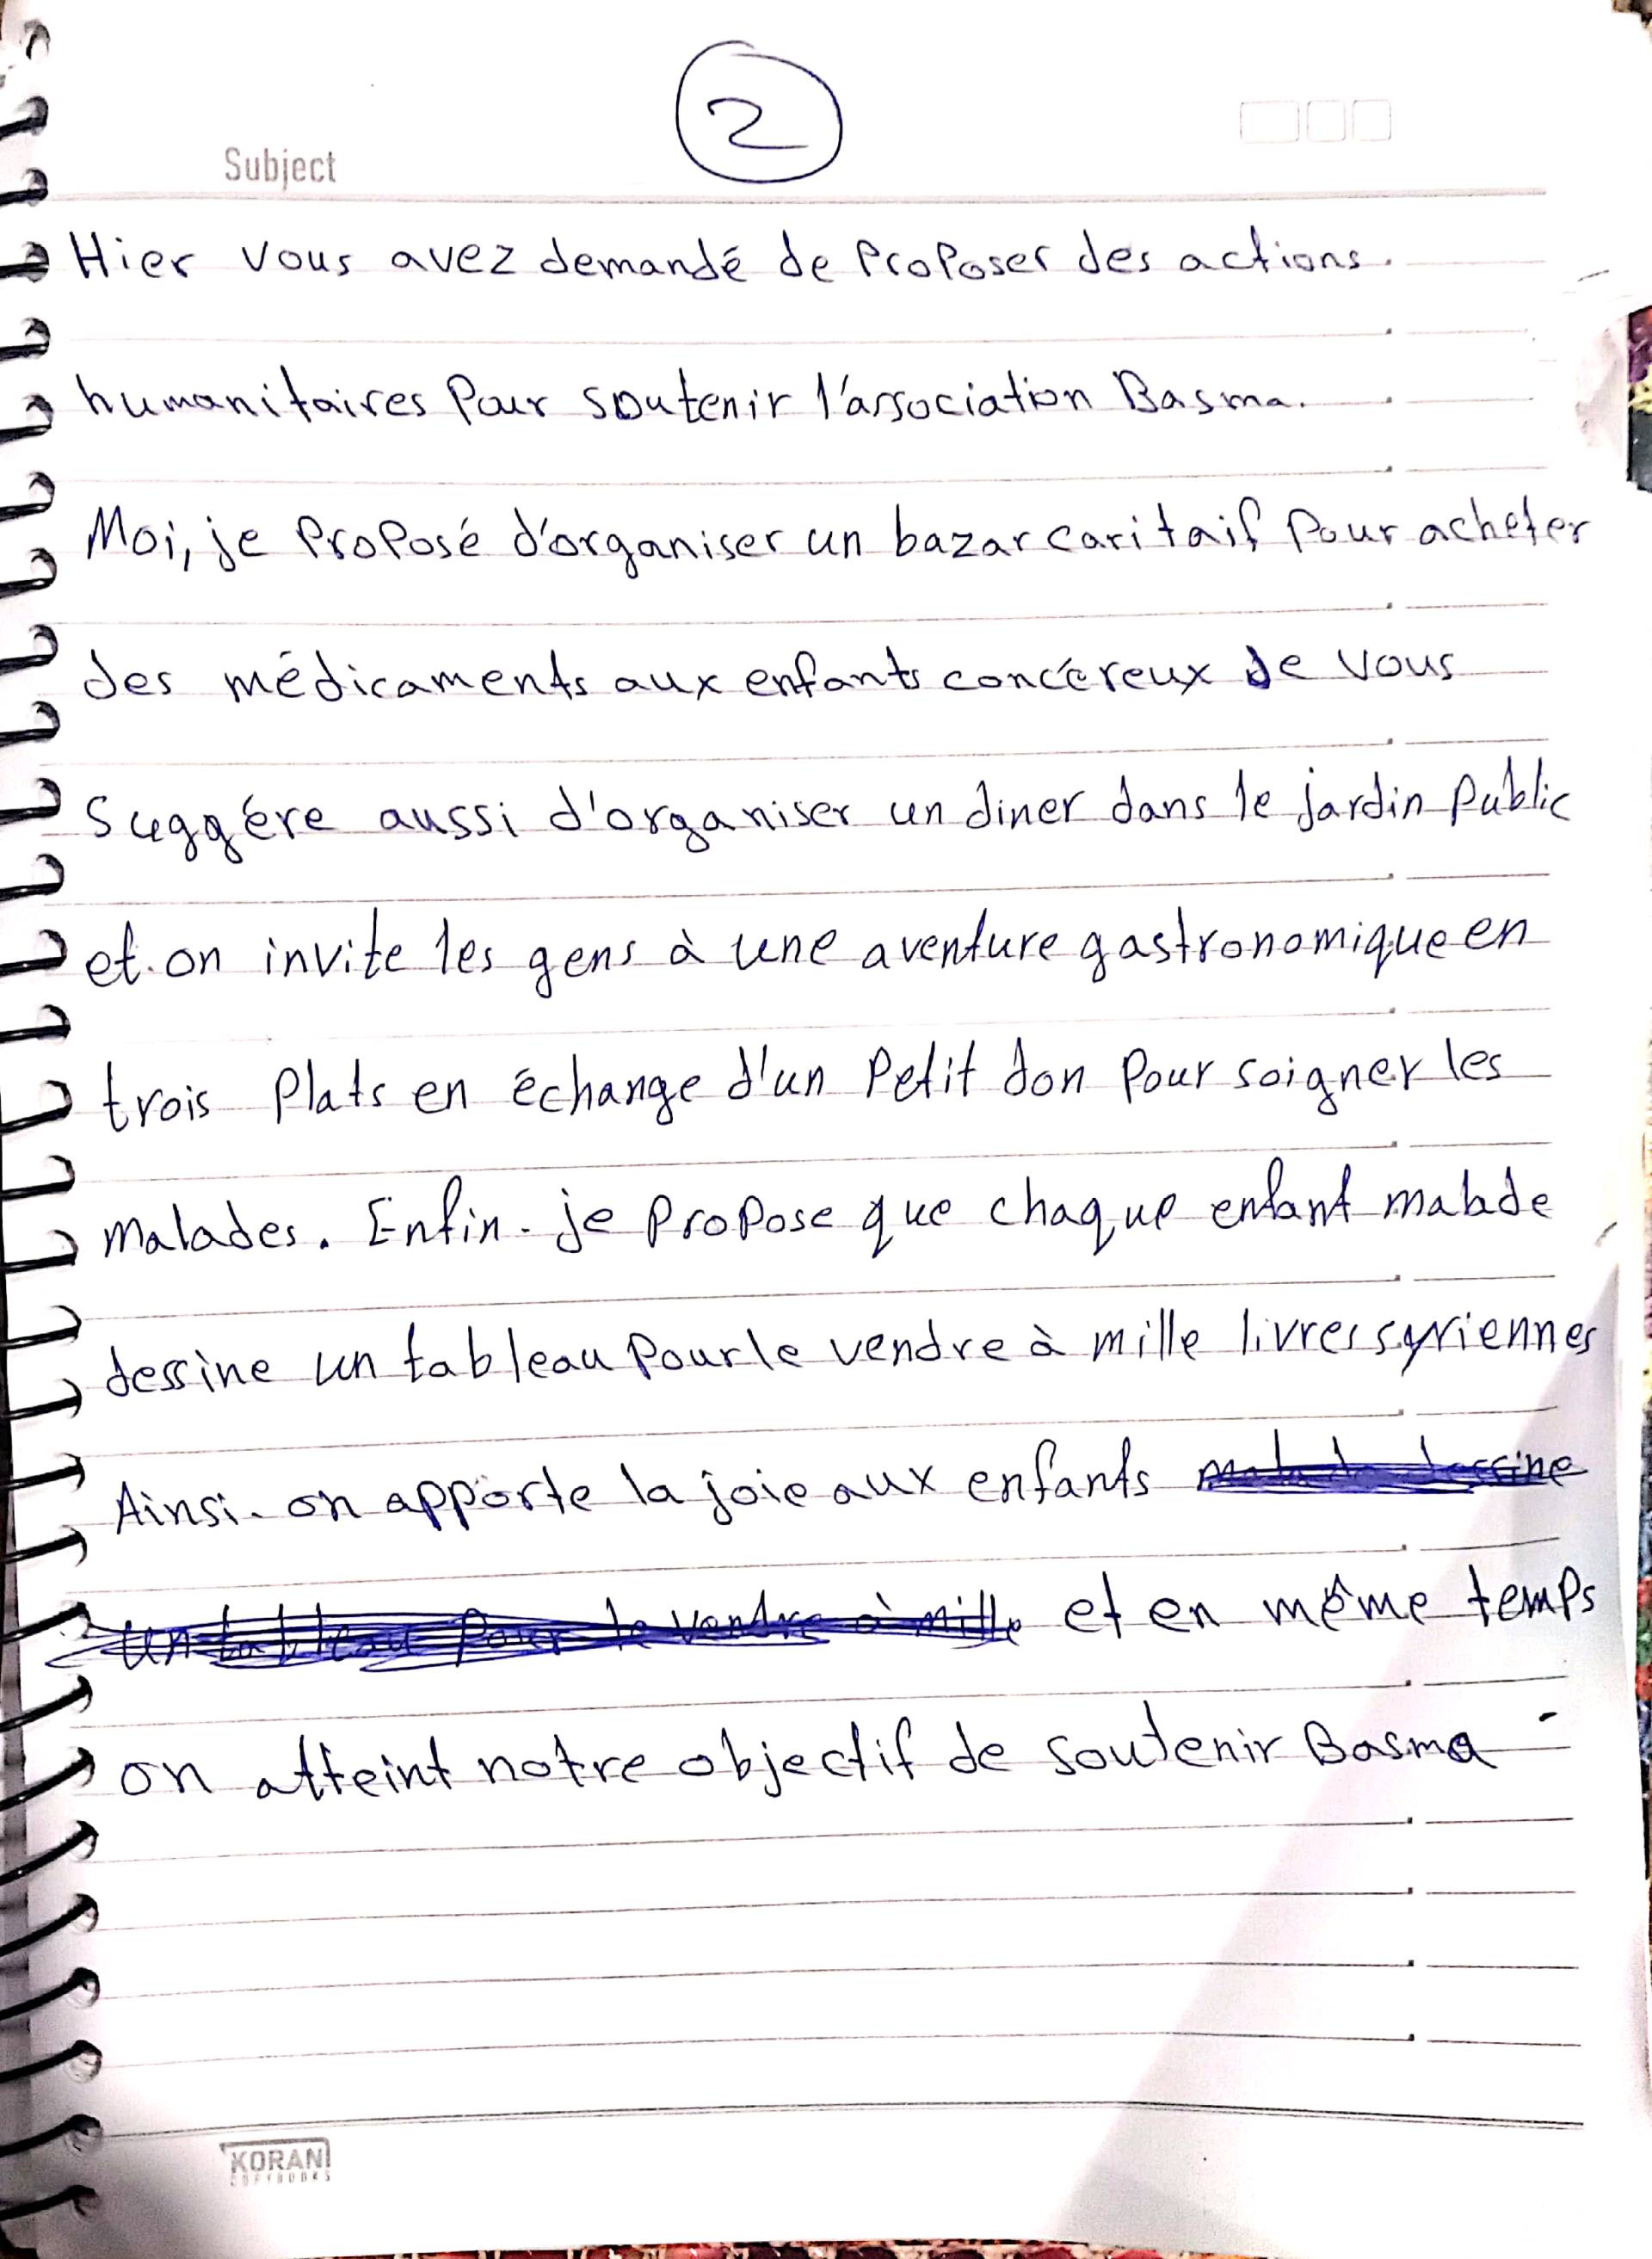 2
Subject
Hier vous avez demandé de proposer des actions.
humanitaires pour soutenir l'association Basma.
Moi, je proposé d'organiser un bazar caritaif pour acheter
des médicaments aux enfants concéreux Je vous
suggère aussi d'organiser un diner dans le jardin public
et on invite les gens à une aventure gastronomique en
trois plats en échange d'un petit don pour soigner les
malades. Enfin. je propose que chaque enfant malade
dessine un tableau pour le vendre à mille livres syriennes
Ainsi. on apporte la joie aux enfants
et en même temps
on atteint notre objectif de soutenir Basma
KORAN
COPYBOOKS